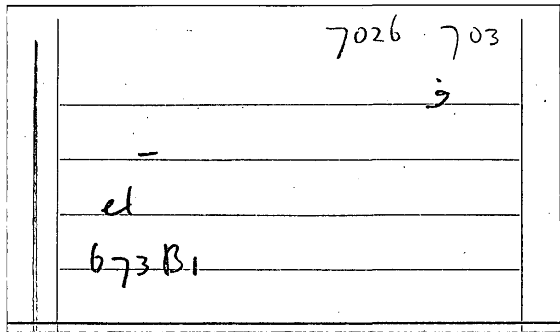 7026 703
و
-
el
673 B1